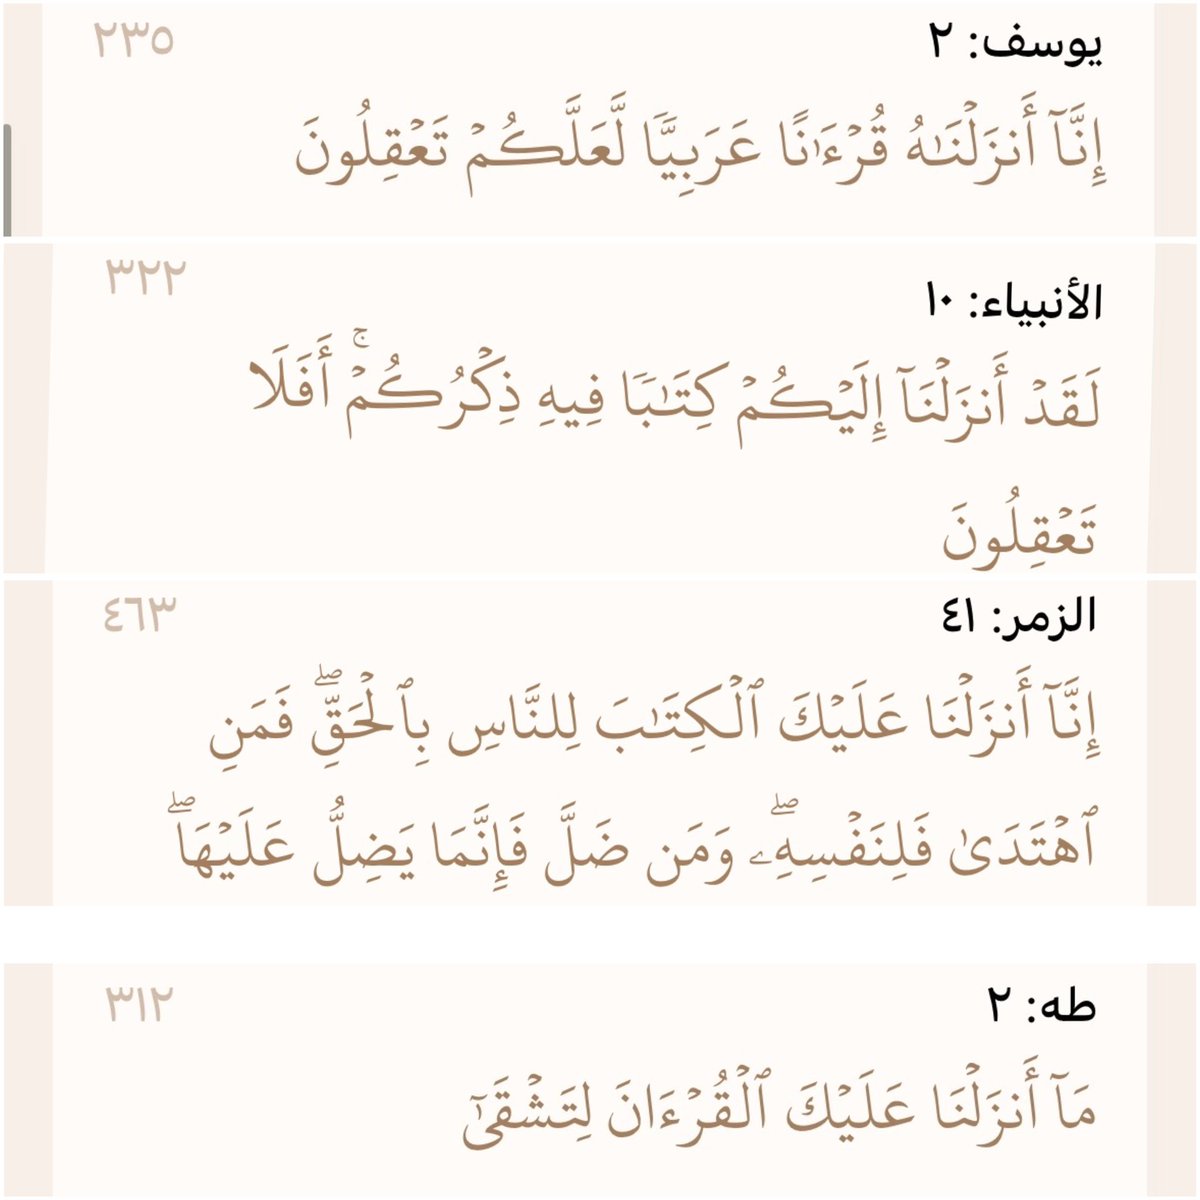 يوسف: ٢ ٢٣٥
إِنَّآ أَنزَلۡنَٰهُ قُرۡءَٰنًا عَرَبِيّٗا لَّعَلَّكُمۡ تَعۡقِلُونَ
٣٢٢
الأنبياء: ١٠
لَقَدۡ أَنزَلۡنَآ إِلَيۡكُمۡ كِتَٰبٗا فِيهِ ذِكۡرُكُمۡۚ أَفَلَا
تَعۡقِلُونَ
الزمر: ٤١ ٤٦٣
إِنَّآ أَنزَلۡنَا عَلَيۡكَ ٱلۡكِتَٰبَ لِلنَّاسِ بِٱلۡحَقِّۖ فَمَنِ
ٱهۡتَدَىٰ فَلِنَفۡسِهِۦۖ وَمَن ضَلَّ فَإِنَّمَا يَضِلُّ عَلَيۡهَاۖ
طه: ٢ ٣١٢
مَآ أَنزَلۡنَا عَلَيۡكَ ٱلۡقُرۡءَانَ لِتَشۡقَىٰٓ